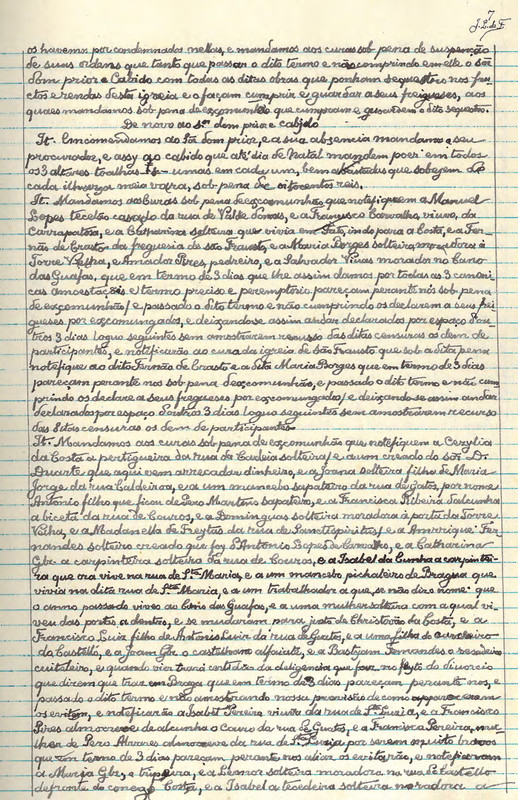 7
J. L. de F.
os havemos por condemnados nellas, e mandamos aos curas sob pena de suspenção
de suas ordens que tanto que passar o dito termo e não comprindo em elle o sôr
Dom prior e Cabido com todas as ditas obras que ponham sequestro nos fru
ctos e rendas desta igreia e o façam cumprir e guardar a seus freigueses, aos
quaes mandamos sob pena de excomunhão que cumpram e guardem o dito sequestro.
De novo ao Sr. dom prior e cabido
It. Emcomendamos ao Sôr Dom prior, e a sua absencia mandamos a seu
procurador, e assy ao cabido que até dia de Natal mandem poer em todos
os 3 altares toalhas umas em cada um, bem que sobejem de
cada ilharga meia vara, sob pena de oitocentos reis.
It. Mandamos aos Curas sob pena de excomunhão que notefiquem a Manuel
Lopes tecelão casado da rua de Val de Donas, e a Francisco Carvalho, viuvo, da
Carrapatosa, e a Catharina solteira que vivia em Fato, indo para a Costa, e a Fer-
não de Crasto da freguesia de são Fausto, e a Maria Borges solteira moradora á
Torre Velha, e Amador Pires, pedreiro, e a Salvador Vinas morador no Cano
das Guafas, que em termo de 3 dias que lhe assim damos por todas as 3 canoni
cas amoestações e termo preciso e peremptorio pareçam perante nós sob pena
de excomunhão/ e passado o dito termo e não cumprindo os declarem a seus frei
gueses por excomungados, e deixando-se assim andar declarados por espaço d'ou-
tros 3 dias logo seguintes sem amostrarem recurso das ditas censuras os dem de
participantes, e notificarão ao cura da igreia de são Fausto que sob a dita pena
notefique ao dito Fernão de Crasto e a dita Maria Borges que em termo de 3 dias
pareçam perante nos sob pena d'excomunhão, e passado o dito termo e não cum
prindo os declare a seus fregueses por excomungados/ e deixando-se assim andar
declarados por espaço d'outros 3 dias loguo seguintes sem amostrarem recurso
das ditas censuras os dem de participantes.
It. Mandamos aos curas sob pena de excomunhão que notefiquem a Cerylia
da Costa a pertigueira da rua da Cadeia solteira/ e a um creado do sôr Dr.
Duarte que aqui vem arrecadar dinheiro, e a Joana solteira filha de Maria
Jorge da rua Caldeiroa, e a um mancebo sapateiro da rua de gatos, por nome
Antonio filho que ficou de Pero Martins sapateiro, e a Francisca Ribeira d'alcunha
a biceta da rua de Couros, e a Dominguas solteira moradora á porta da Torre
Velha, e a Madanella de Freitas da rua de Santo Spiritus/ e a Amrrique Fer
nandes solteiro creado que foy d'Antonio Lopes de Carvalho, e a Catharina
Glz. a carpinteira solteira da rua de Couros, e a Isabel da Cunha a carpintei-
ra que ora vive na rua de Sta. Maria, e a um mancebo picheleiro de Bragua que
vivia na dita rua de Sta. Maria, e a um trabalhador a que se não diz o nome que
o anno passado viveo ao Cano das Guafas, e a uma mulher solteira com a qual vi
veu das portas a dentro, e se mudaram para junto de Christovão da Costa, e a
Francisca Luiz filha de Antonio Luiz da rua de Guatos, e a uma filha do
do Castello, e a Joam Glz. o castelhano alfaiate, e a Bastyam Fernandes o
cuiteleiro, e quando vier trará certidão da deligencia que fez no feyto do divorcio
que dizem que traz em Braga que em termo de 3 dias pareçam perante nos, e
passado o dito termo e não amostrando nossa provisão de como appareceram
os evitem, e notificarão a Isabel Pereira viuva da rua de Sta. Luzia, e a Francisco
Pires almocreve de alcunha o Couro da rua de Guatos, e a Francisca Pereira, mu-
lher de Pero Alvares almocreve da rua de Sta. Luzia por serem muito bravos
que em termo de 3 dias pareçam perante nos aliaz os evitarão, e notificaram
a Maria Glz., e tripeira, e a Leanor solteira moradora na rua do Castello
defronte do conego Costa, e a Isabel a tecedeira solteira moradora a